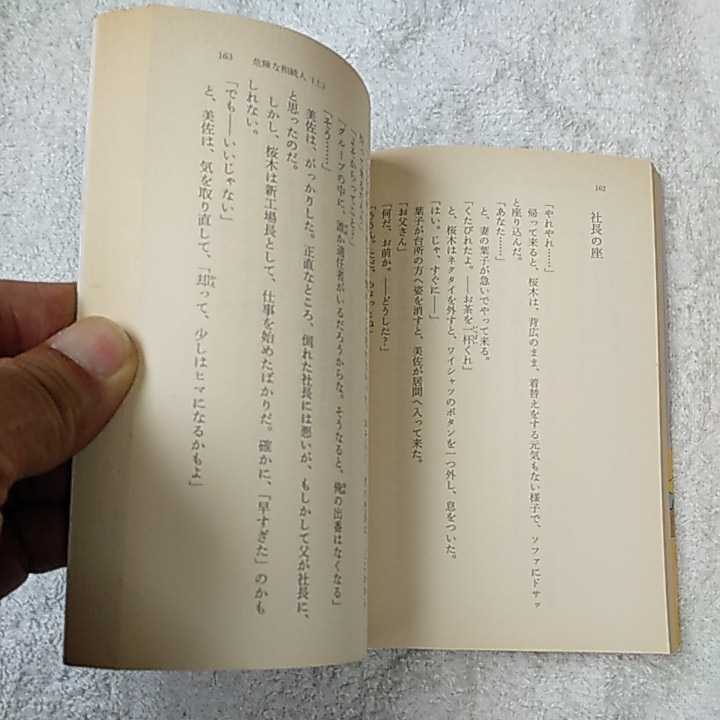 162
社長の座
「やれやれ……」
帰って来ると、桜木は、背広のまま、着替えをする元気もない様子で、ソファにドサッ
と座り込んだ。
「あなた……」
と、妻の葉子が急いでやって来る。
「くたびれたよ。――お茶を一杯くれ」
と、桜木はネクタイを外すと、ワイシャツのボタンを一つ外し、息をついた。
「はい。じゃ、すぐに――」
葉子が台所の方へ姿を消すと、美佐が居間へ入って来た。
「お父さん」
「何だ、お前か。――どうした？」
163 危険な相続人（上）
「グループの中に、誰か適任者がいるだろうからな。そうなると、俺の出番はなくなる」
「そう……」
美佐は、がっかりした。正直なところ、倒れた社長には悪いが、もしかして父が社長に、
と思ったのだ。
しかし、桜木は新工場長として、仕事を始めたばかりだ。確かに、「早すぎた」のかも
しれない。
「でも――いいじゃない」
と、美佐は、気を取り直して、「却って、少しはヒマになるかもよ」